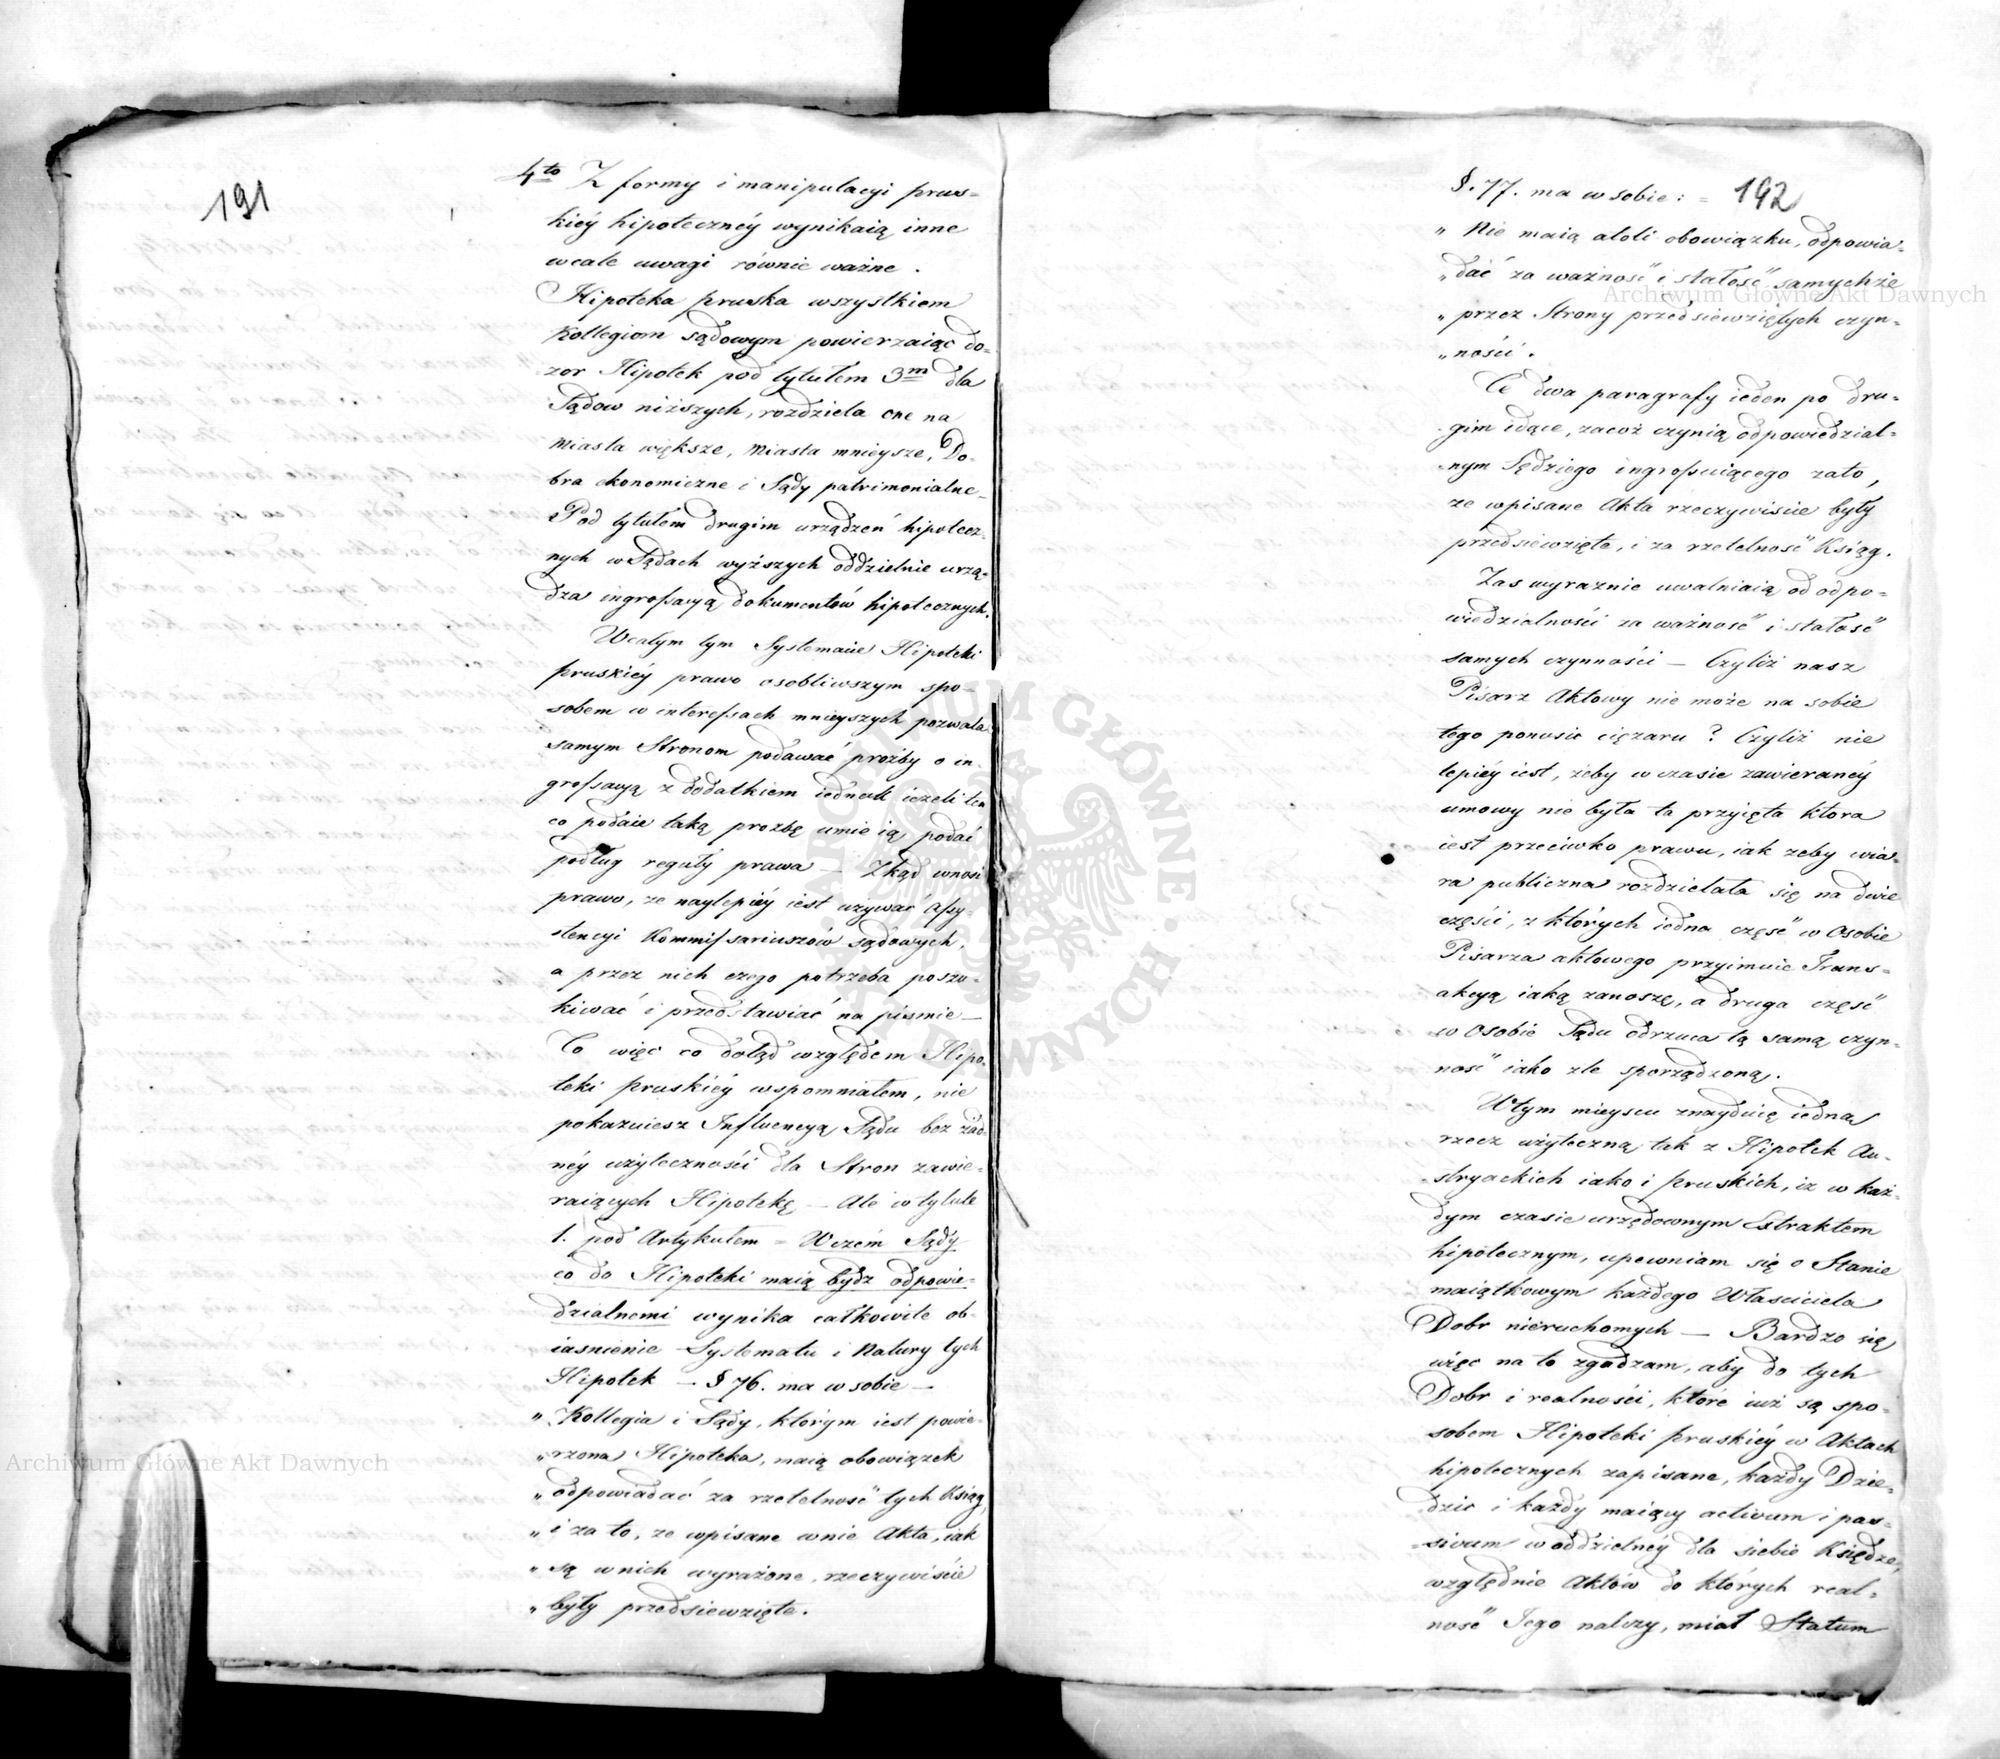 191
4to Z formy i manipulacyi prus=
kiéy hipotecznéy wynikaią inne
wcale uwagi równie ważne.
Hipoteka pruska wszystkiem
Kollegiom sądowym powierzaiąc do=
zor Hipotek pod tytułem 3m dla
Sądow niższych, rozdziela one na
Miasta większe, Miasta mnieysze, Do=
bra ekonomiczne i Sądy patrimonialne_
Pod tytułem drugim urządzeń hipotecz=
nych w Sądach wyższych oddzielnie urzą=
dza ingrossacyą dokumentów hipotecznych.
Wcałym tym Systemacie Hipoteki
pruskiéy prawo osobliwszym spo=
sobem w interessach mnieyszych pozwala
samym Stronom podawać prożby o in=
grossacyą z dodatkiem iednak ieżeli ten
co podaie taką prożbę umie ią podać
podług reguły prawa — Zkąd wnosi
prawo, ze naylepiéy iest używać Assy=
stencyi Kommissariuszów sądowych,
a przez nich czego potrzeba poszu=
kiwać i przedstawiać na piśmie —
To więc co dotąd względem Hipo=
teki pruskiéy wspomniałem, nie
pokazuiesz Influencyą Sądu bez żad=
néy użyteczności dla Stron zawie=
raiących Hipotekę — Ale w tytule
1. pod Artykułem = Wczém Sądy
co do Hipoteki maią bydz odpowie=
dzialnemi wynika całkowite ob=
iasnienie Systematu i Natury tych
Hipotek — § 76. ma w sobie —
„ Kollegia i Sądy, którym iest powie=
„ rzona Hipoteka, maią obowiązek
„ odpowiadać za rzetelność tych Ksiąg,
„ i za to, ze wpisane wnie Akta, iak
„ są w nich wyrażone, rzeczywiście
„ były przedsiewzięte.
§. 77. ma w sobie: = 192
„ Nie maią atoli obowiązku, odpowia=
„ dać za ważność i stałość samychże
„ przez Strony przedsiewziętych czyn=
„ ności.
Te dwa paragrafy ieden po dru=
gim idące, zacoż czynią odpowiedzial=
nym Sędziego ingrossuiącego zato,
ze wpisane Akta rzeczywiscie były
przedsiewzięte, i za rzetelność Ksiąg.
Zas wyraznie uwalniaią od odpo=
wiedzialności za ważność i stałość
samych czynności — Czyliż nasz
Pisarz Aktowy nie może na sobie
tego ponosic ciężaru? Czyliż nie
lepiéy iest, żeby w czasie zawieranéy
umowy nie była ta przyięta ktora
iest przeciwko prawu, iak zeby wia=
ra publiczna rozdzielała się na dwie
części, z których iedna część w Osobie
Pisarza aktowego przyimuie Trans=
akcyą iaką zanoszę, a druga część
w Osobie Sądu odrzuca tą samą czyn=
ność iako źle sporządzoną.
Wtym mieyscu znayduię iedna
rzecz użyteczną tak z Hipotek Au=
stryackich iako i pruskich, iz w każ=
dym czasie urzędownym Extraktem
hipotecznym, upewniam się o Stanie
maiątkowym każdego Właściciela
Dobr nieruchomych — Bardzo się
więc na to zgadzam, aby do tych
Dobr i realności, które iuż są spo=
sobem Hipoteki pruskiéy w Aktach
hipotecznych zapisane, każdy Dzie=
dzic i każdy maiący activum i pas=
sivum w oddzielnéy dla siebie Księdze,
względnie Aktów do których real=
ność Jego należy, miał Statum
Archiwum Główne Akt Dawnych
Archiwum Główne Akt Dawnych
ARCHIWUM GŁÓWNE AKT DAWNYCH